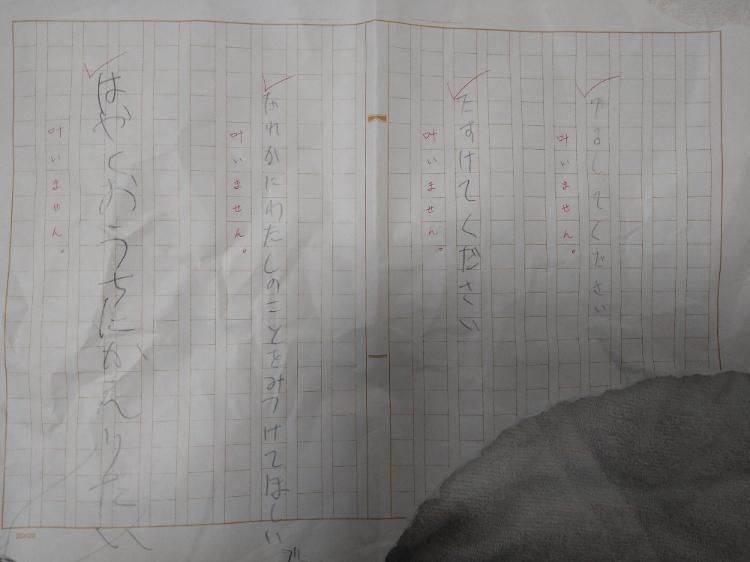 ゆるしてください
叶いません。
たすけてください
叶いません。
だれかにわたしのことをみつけてほしい
叶いません。
はやくおうちにかえりたい
叶いません。
20×20